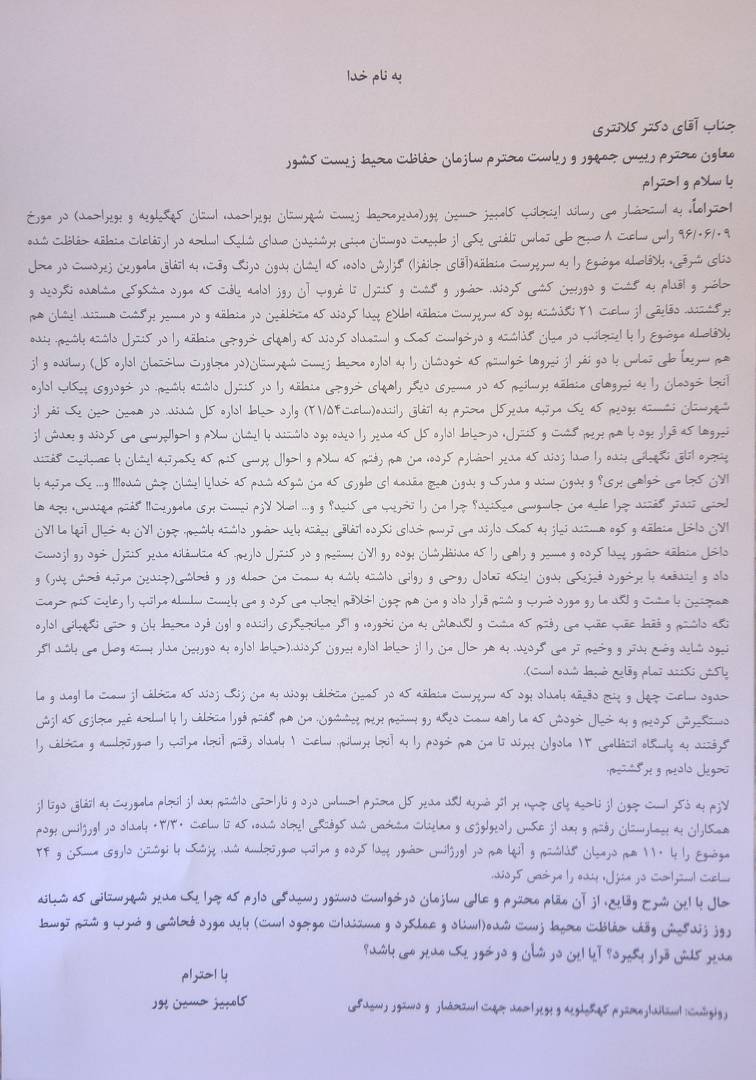 به نام خدا
جناب آقای دکتر کلانتری
معاون محترم رییس جمهور و ریاست محترم سازمان حفاظت محیط زیست کشور
با سلام و احترام
احتراماً، به استحضار می رساند اینجانب کامبیز حسین پور(مدیرمحیط زیست شهرستان بویراحمد، استان کهگیلویه و بویراحمد) در مورخ
۹۶/۰۶/۰۹ راس ساعت ۸ صبح طی تماس تلفنی یکی از طبیعت دوستان مبنی برشنیدن صدای شلیک اسلحه در ارتفاعات منطقه حفاظت شده
دنای شرقی، بلافاصله موضوع را به سرپرست منطقه(آقای جانفزا) گزارش داده، که ایشان بدون درنگ وقت، به اتفاق مامورین زیردست در محل
حاضر و اقدام به گشت و دوربین کشی کردند. حضور و گشت و کنترل تا غروب آن روز ادامه یافت که مورد مشکوکی مشاهده نگردید و
برگشتند. دقایقی از ساعت ۲۱ نگذشته بود که سرپرست منطقه اطلاع پیدا کردند که متخلفین در منطقه و در مسیر برگشت هستند. ایشان هم
بلافاصله موضوع را با اینجانب در میان گذاشته و درخواست کمک و استمداد کردند که راههای خروجی منطقه را در کنترل داشته باشیم. بنده
هم سریعاً طی تماس با دو نفر از نیروها خواستم که خودشان را به اداره محیط زیست شهرستان(در مجاورت ساختمان اداره کل) رسانده و از
آنجا خودمان را به نیروهای منطقه برسانیم که در مسیری دیگر راههای خروجی منطقه را در کنترل داشته باشیم. در خودروی پیکاب اداره
شهرستان نشسته بودیم که یک مرتبه مدیرکل محترم به اتفاق راننده(ساعت۲۱/۵۴) وارد حیاط اداره کل شدند. در همین حین یک نفر از
نیروها که قرار بود با هم بریم گشت و کنترل، درحیاط اداره کل که مدیر را دیده بود داشتند با ایشان سلام و احوالپرسی می کردند و بعدش از
پنجره اتاق نگهبانی بنده را صدا زدند که مدیر احضارم کرده، من هم رفتم که سلام و احوال پرسی کنم که یکمرتبه ایشان با عصبانیت گفتند
الان کجا می خواهی بری؟ و بدون سند و مدرک و بدون هیچ مقدمه ای طوری که من شوکه شدم که خدایا ایشان چش شده!!! و... یک مرتبه با
لحنی تندتر گفتند چرا علیه من جاسوسی میکنید؟ چرا من را تخریب می کنید؟ و و... اصلا لازم نیست بری ماموریت!! گفتم مهندس، بچه ها
الان داخل منطقه و کوه هستند نیاز به کمک دارند می ترسم خدای نکرده اتفاقی بیفته باید حضور داشته باشیم. چون الان به خیال آنها ما الان
داخل منطقه حضور پیدا کرده و مسیر و راهی را که مدنظرشان بوده رو الان بستیم و در کنترل داریم. که متاسفانه مدیر کنترل خود رو ازدست
داد و ایندفعه با برخورد فیزیکی بدون اینکه تعادل روحی و روانی داشته باشه به سمت من حمله ور و فحاشی(چندین مرتبه فحش پدر) و
همچنین با مشت و لگد ما رو مورد ضرب و شتم قرار داد و من هم چون اخلاقم ایجاب می کرد و می بایست سلسله مراتب را رعایت کنم حرمت
نگه داشتم و فقط عقب عقب می رفتم که مشت و لگدهاش به من نخوره، و اگر میانجیگری راننده و اون فرد محیط بان و حتی نگهبانی اداره
نبود شاید وضع بدتر و وخیم تر می گردید. به هر حال من را از حیاط اداره بیرون کردند.(حیاط اداره به دوربین مدار بسته وصل می باشد اگر
پاکش نکنند تمام وقایع ضبط شده است).
حدود ساعت چهل و پنج دقیقه بامداد بود که سرپرست منطقه که در کمین متخلف بودند به من زنگ زدند که متخلف از سمت ما اومد و ما
دستگیرش کردیم و به خیال خودش که ما راهه سمت دیگه رو بستیم بریم پیششون. من هم گفتم فورا متخلف را با اسلحه غیر مجازی که ازش
گرفتند به پاسگاه انتظامی ۱۳ مادوان ببرند تا من هم خودم را به آنجا برسانم. ساعت ۱ بامداد رفتم آنجا، مراتب را صورتجلسه و متخلف را
تحویل دادیم و برگشتیم.
لازم به ذکر است چون از ناحیه پای چپ، بر اثر ضربه لگد مدیر کل محترم احساس درد و ناراحتی داشتم بعد از انجام ماموریت به اتفاق دوتا از
همکاران به بیمارستان رفتم و بعد از عکس رادیولوژی و معاینات مشخص شد کوفتگی ایجاد شده، که تا ساعت ۰۳/۳۰ بامداد در اورژانس بودم
موضوع را با ۱۱۰ هم درمیان گذاشتم و آنها هم در اورژانس حضور پیدا کرده و مراتب صورتجلسه شد. پزشک با نوشتن داروی مسکن و ۲۴
ساعت استراحت در منزل، بنده را مرخص کردند.
حال با این شرح وقایع، از آن مقام محترم و عالی سازمان درخواست دستور رسیدگی دارم که چرا یک مدیر شهرستانی که شبانه
روز زندگیش وقف حفاظت محیط زست شده(اسناد و عملکرد و مستندات موجود است) باید مورد فحاشی و ضرب و شتم توسط
مدیر کلش قرار بگیرد؟ آیا این در شأن و درخور یک مدیر می باشد؟
با احترام
کامبیز حسین پور
رونوشت: استاندارمحترم کهگیلویه و بویراحمد جهت استحضار و دستور رسیدگی